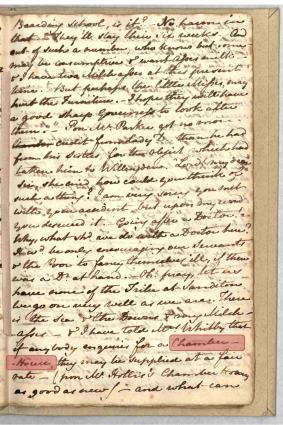 Boarding school, is it? No harm in
that. They'll stay their six weeks. And
out of such a number, who knows but some
may be consumptive & want Asses milk
& I have two Milch asses at this present
time. But perhaps the little Misses may
hurt the Furniture. I hope they will have
a good sharp Governess to look after
them. Poor Mr Parker got no more
credit from Lady D. than he had
from his Sisters, for the object which had
taken him to Willingden. Lord! my dear
Sir, she cried, how could you think of
such a thing? I am very sorry you met
with your accident, but upon my word
you deserved it. Going after a Doctor!
Why, what shd we do with a Doctor here?
It wd be encouraging our Servants
& the Poor to fancy themselves ill, if there
was a Dr at hand. Oh! pray, let us
have none of the Tribe at Sanditon
We go on very well as we are. There
is the Sea & the Downs & my Milch-
asses & I have told Mrs Whilby that
if any body enquire for a Chamber-
Horse, they may be supplied at a fair
rate (poor Mr Hollis's Chamber Horse,
as good as new) and what can